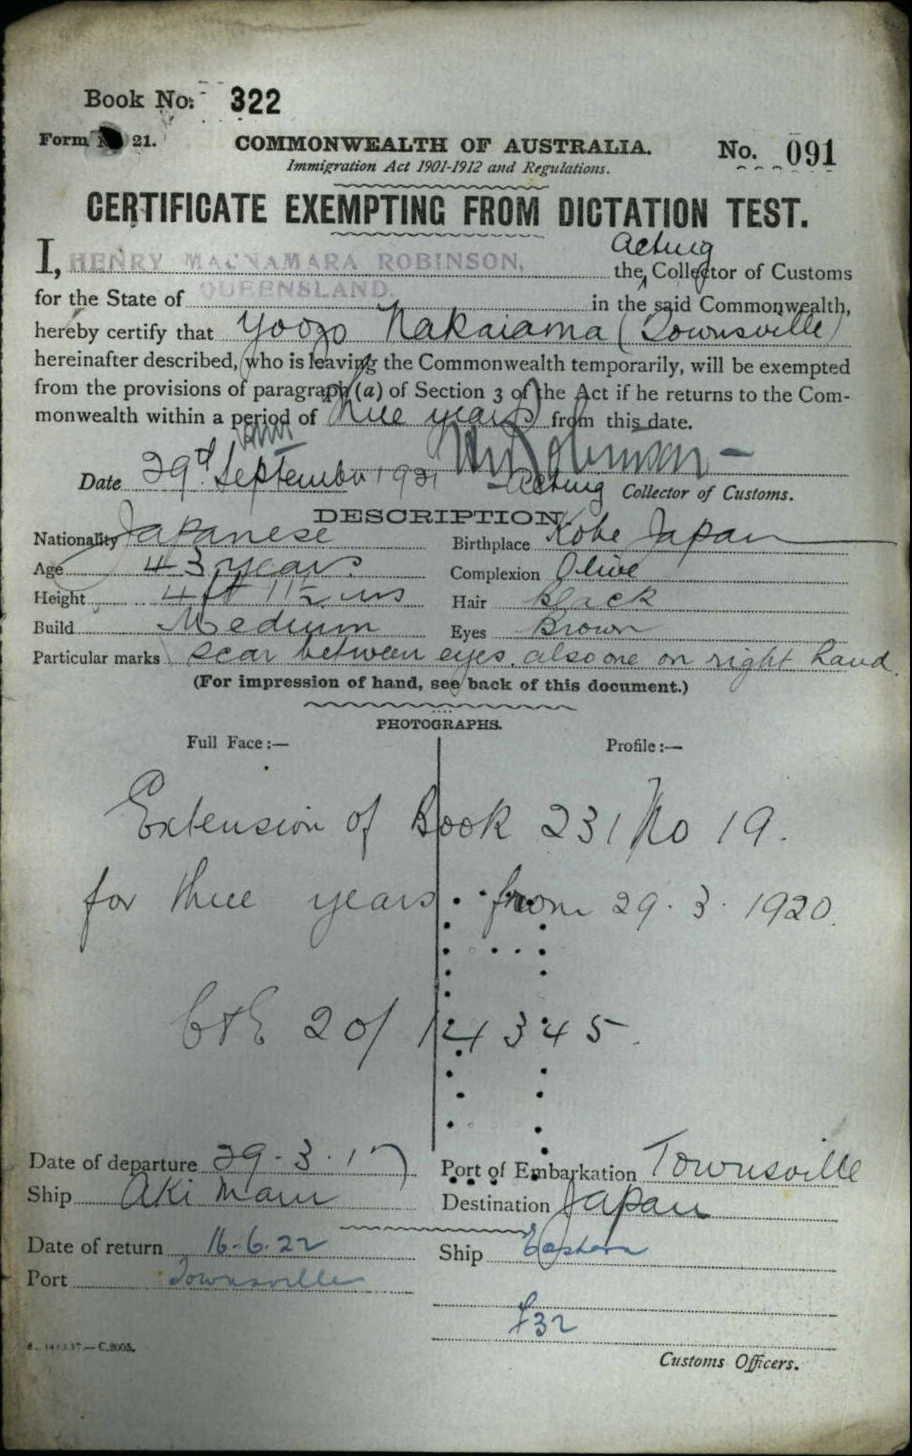 Book No: 322
Form 21.
COMMONWEALTH OF AUSTRALIA.
No. 091
Immigration Act 1901-1912 and Regulations.
CERTIFICATE EXEMPTING FROM DICTATION TEST.
Acting
I, HENRY MACNAMARA ROBINSON, the Collector of Customs
for the State of QUEENSLAND. in the said Commonwealth,
hereby certify that Yoozo Nakaiama (Townsville)
hereinafter described, who is leaving the Commonwealth temporarily, will be exempted
from the provisions of paragraph (a) of Section 3 of the Act if he returns to the Com-
monwealth within a period of three years from this date.
Date 29th September 1921 Acting Collector of Customs.
DESCRIPTION.
Nationality Japanese Birthplace Kobe Japan
Age 43 years Complexion Olive
Height 4 ft 11½ ins Hair Black
Build Medium Eyes Brown
Particular marks scar between eyes. also one on right hand.
(For impression of hand, see back of this document.)
PHOTOGRAPHS.
Full Face:— Profile:—
Extension of Book 231 No 19.
for three years from 29.3.1920.
C&E 20/14345.
Date of departure 29.3.17 Port of Embarkation Townsville
Ship Aki Maru Destination Japan
Date of return 16.6.22 Ship Eastern
Port Townsville
£32
C.8005.
Customs Officers.